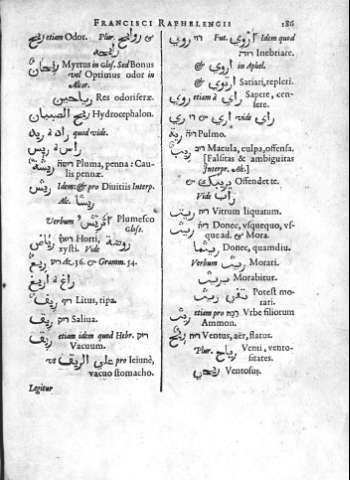 FRANCISCI RAPHELENGII 186
ريح etiam Odor. Plur. روايح &
رايحه
ريحان Myrtus in glos. Sed Bonus
vel Optimus odor in
Alcor.
رياحين Res odoriferæ.
ريح الصبيان Hydrocephalon.
راد & ريد quod vide.
راس & ريس
ريشة Pluma, penna: Cau-
lis pennæ.
ريش Idem: & pro Divitiis Interp.
Alc. ريشا
Verbum Plumesco
Glos.
رياض Horti,
xysti. Vide روضة
ريع Ac. 36. & Gramm. 54.
راع & اريع
ريف Litus, ripa.
ريق Saliva.
ريق etiam idem quod Hebr. ריק
Vacuum.
على الريق pro Ieiunè,
vacuo stomacho.
Legitur
روي Fut. اروي Idem quod
Inebriare.
اروي & in Aphel.
اروي & Satiari, repleri.
راي etiam à Sapere, cen-
sere.
راي & vide
رية Pulmo.
ريب Macula, culpa, offensa.
[Falsitas & ambiguitas
Interpr. Alc.]
& Offendet te.
راب Vide
Vitrum liquatum.
ريث Donec, vsquequo, vs-
que ad. & Mora.
ريثما Donec, quamdiu.
Verbum ريث Morati.
يريث Morabitur.
Potest mo-
rari.
etiam pro Vrbe filiorum
Ammon.
ريح Ventus, aër, flatus.
Plur. رياح Venti, vento-
sitates.
ريحي Ventosus.